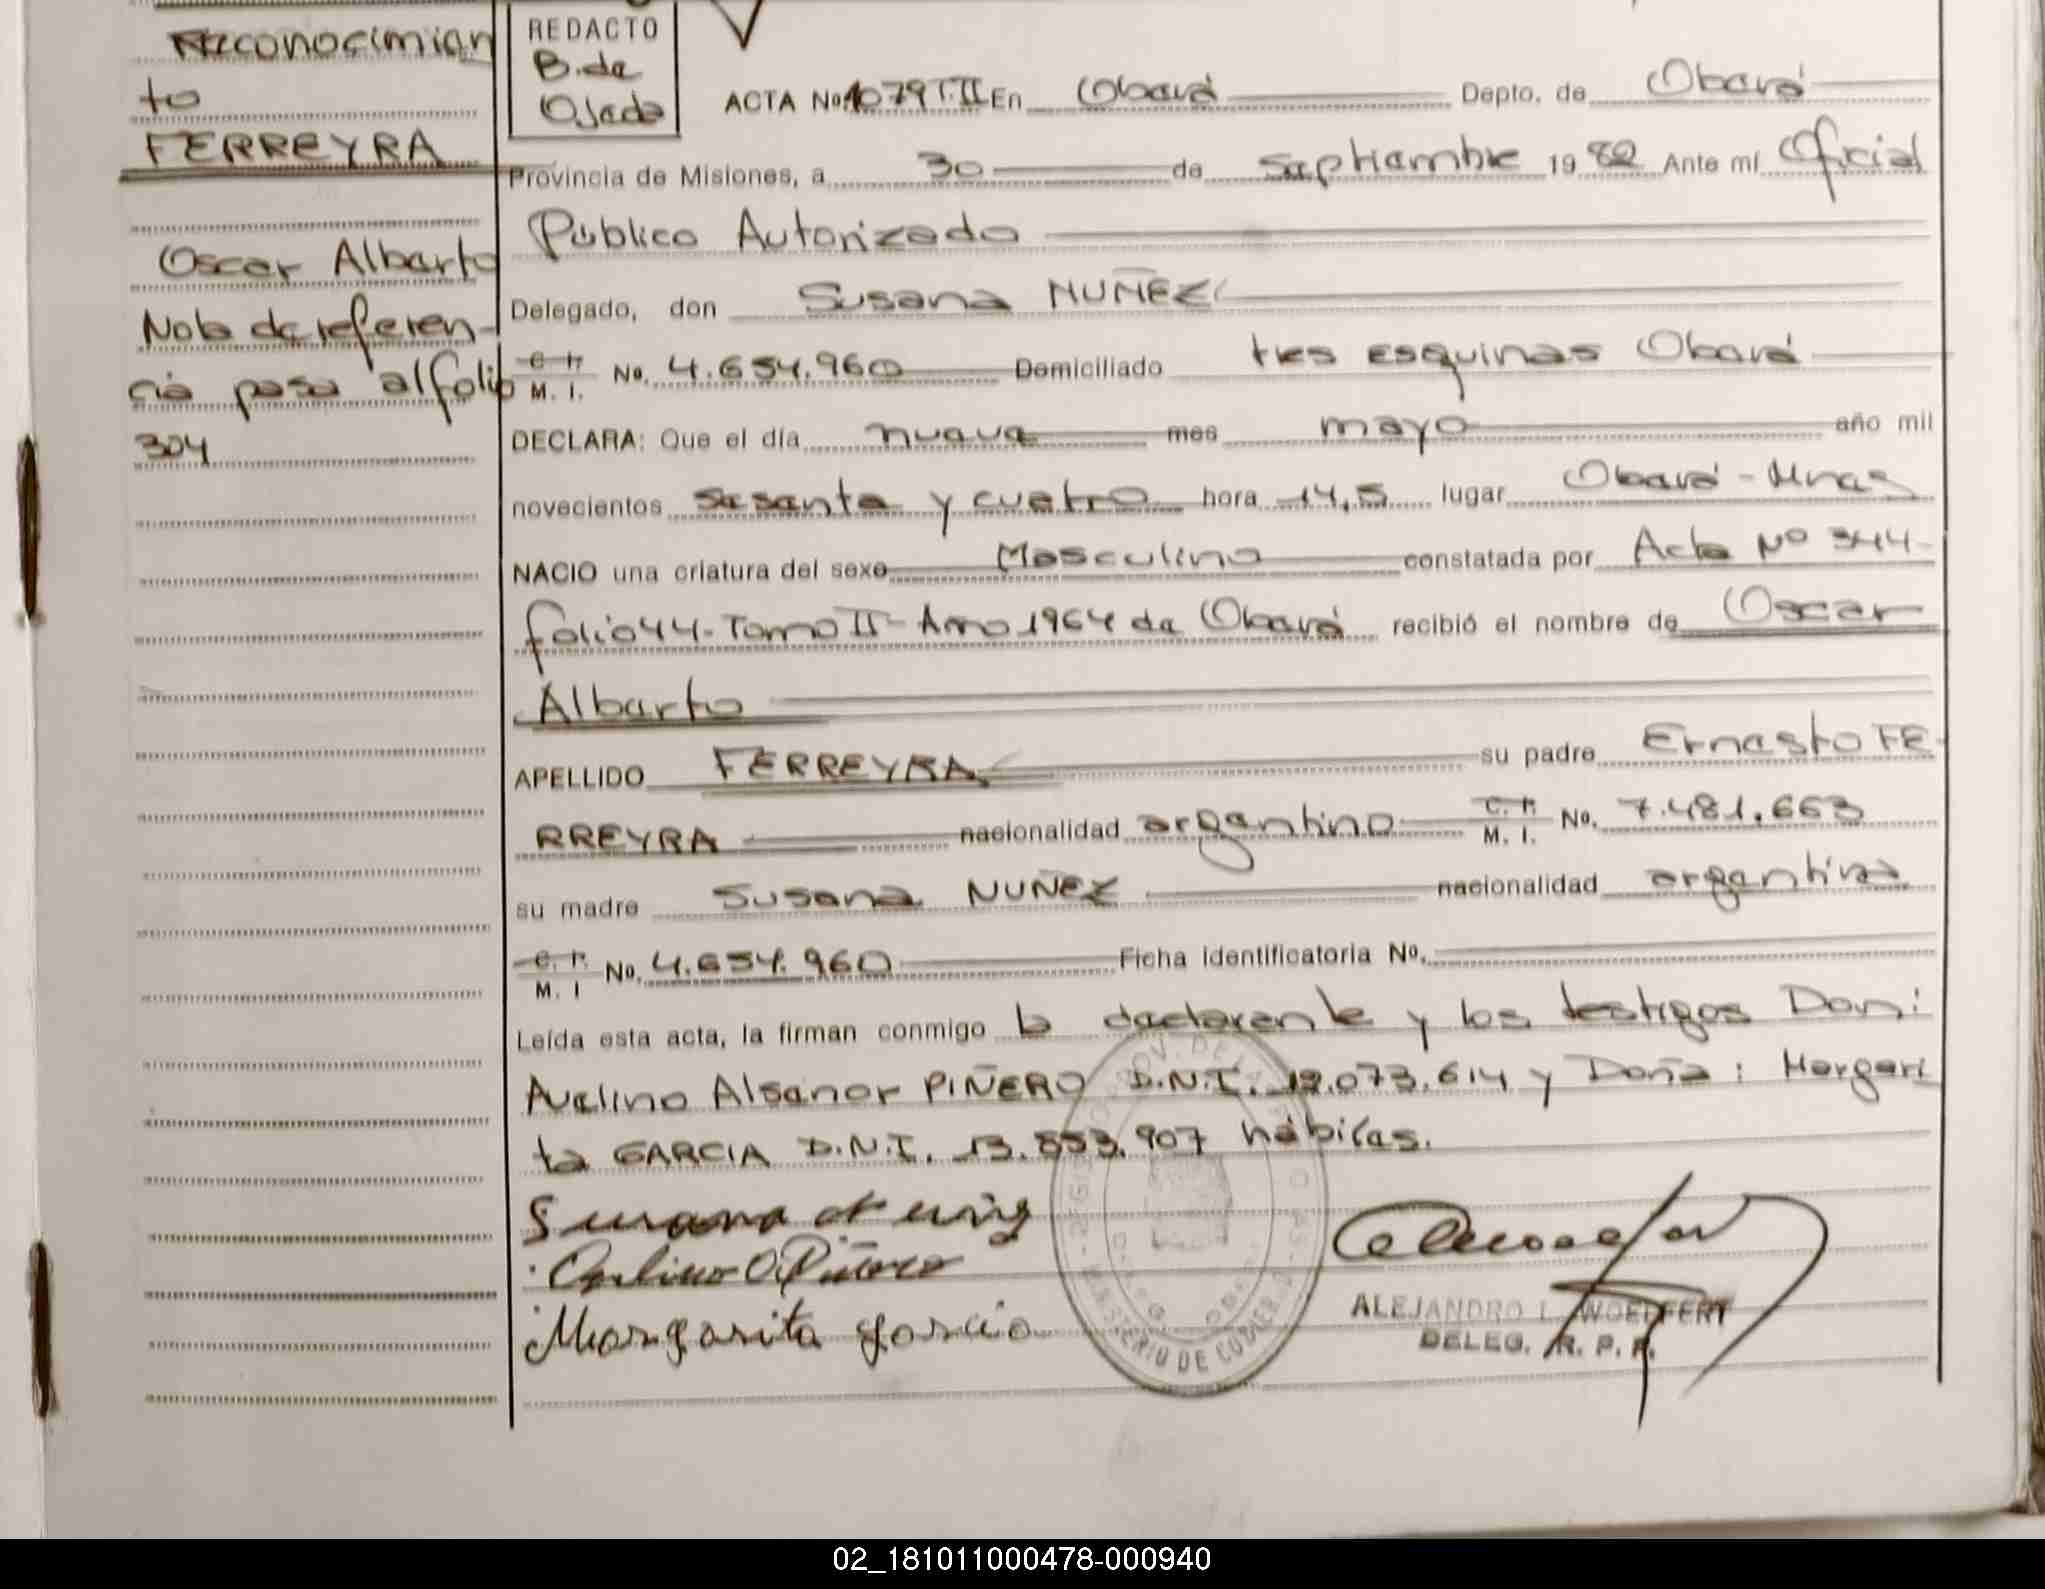 Reconocimien
to
FERREYRA
Oscar Alberto
Nota de referen-
cia pasa al folio
304
REDACTO
B. de
Ojeda
ACTA No. 1079 T.II En Oberá Depto. de Oberá
Provincia de Misiones, a 30 de septiembre 1982 Ante mí Oficial
Público Autorizado
Delegado, don Susana NUÑEZ
C. I.
M. I. No. 4.654.960 Domiciliado tres esquinas Oberá
DECLARA: Que el día nueve mes mayo año mil
novecientos sesenta y cuatro hora 14,5 lugar Oberá - Mnes
NACIO una criatura del sexo Masculino constatada por Acta Nº 344-
folio 44- Tomo II- Año 1964 de Oberá recibió el nombre de Oscar
Alberto
APELLIDO FERREYRA su padre Ernesto FE-
RREYRA nacionalidad argentino C. I. M. I. No. 7.481.663
su madre Susana NUÑEZ nacionalidad argentina
C. I.
M. I No. 4.654.960 Ficha identificatoria No.
Leída esta acta, la firman conmigo la declarante y los testigos Don:
Avelino Alsenor PIÑERO D.N.I. 12.073.614 y Doña: Margari
ta GARCIA D.N.I. 13.853.907 hábiles.
Margarita garcia
MINISTERIO DE GOBIERNO
ALEJANDRO L. WOELFERT
DELEG. R. P. P.
02_181011000478-000940